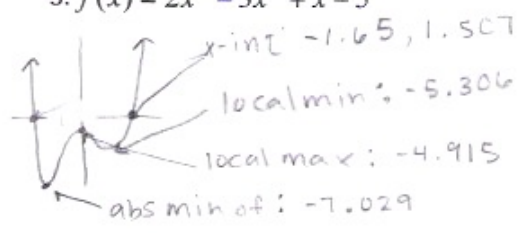 x-int -1.65, 1.507
local min: -5.306
local max: -4.915
abs min of: -7.029